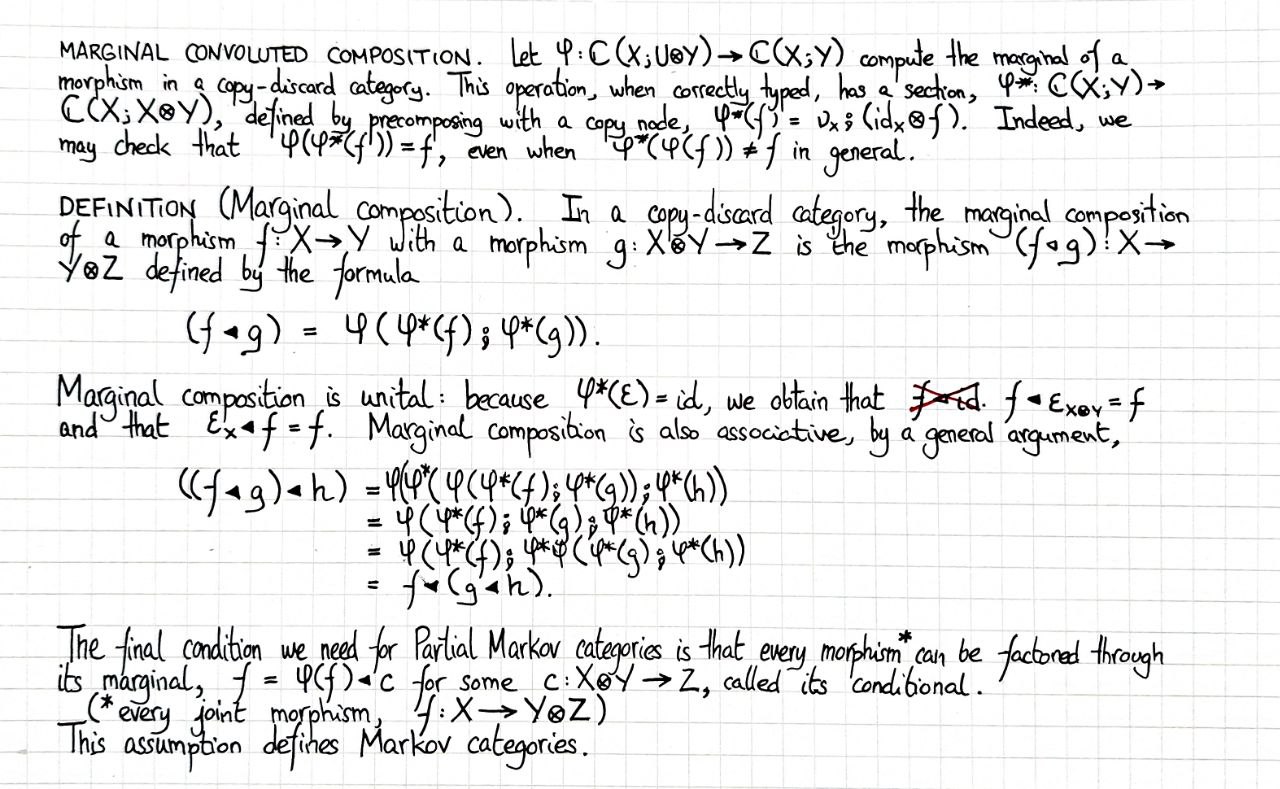 MARGINAL CONVOLUTED COMPOSITION. Let φ: ℂ(X; U⊗Y) → ℂ(X; Y) compute the marginal of a
morphism in a copy-discard category. This operation, when correctly typed, has a section, φ*: ℂ(X;Y) →
ℂ(X; X⊗Y), defined by precomposing with a copy node, φ*(f) = υₓ ⨾ (idₓ ⊗ f). Indeed, we
may check that φ(φ*(f)) = f, even when φ*(φ(f)) ≠ f in general.
DEFINITION (Marginal composition). In a copy-discard category, the marginal composition
of a morphism f: X → Y with a morphism g: X⊗Y → Z is the morphism (f ◂ g): X →
Y⊗Z defined by the formula
(f ◂ g) = φ(φ*(f) ⨾ φ*(g)).
Marginal composition is unital: because φ*(ε) = id, we obtain that f ◂ id. f ◂ ε_X⊗Y = f
and that εₓ ◂ f = f. Marginal composition is also associative, by a general argument,
((f ◂ g) ◂ h) = φ(φ*(φ(φ*(f) ⨾ φ*(g)) ⨾ φ*(h))
= φ(φ*(f) ⨾ φ*(g) ⨾ φ*(h))
= φ(φ*(f) ⨾ φ*φ(φ*(g) ⨾ φ*(h))
= f ◂ (g ◂ h).
The final condition we need for Partial Markov categories is that every morphism* can be factored through
its marginal, f = φ(f) ◂ c for some c: X⊗Y → Z, called its conditional.
(* every joint morphism, f: X → Y⊗Z)
This assumption defines Markov categories.